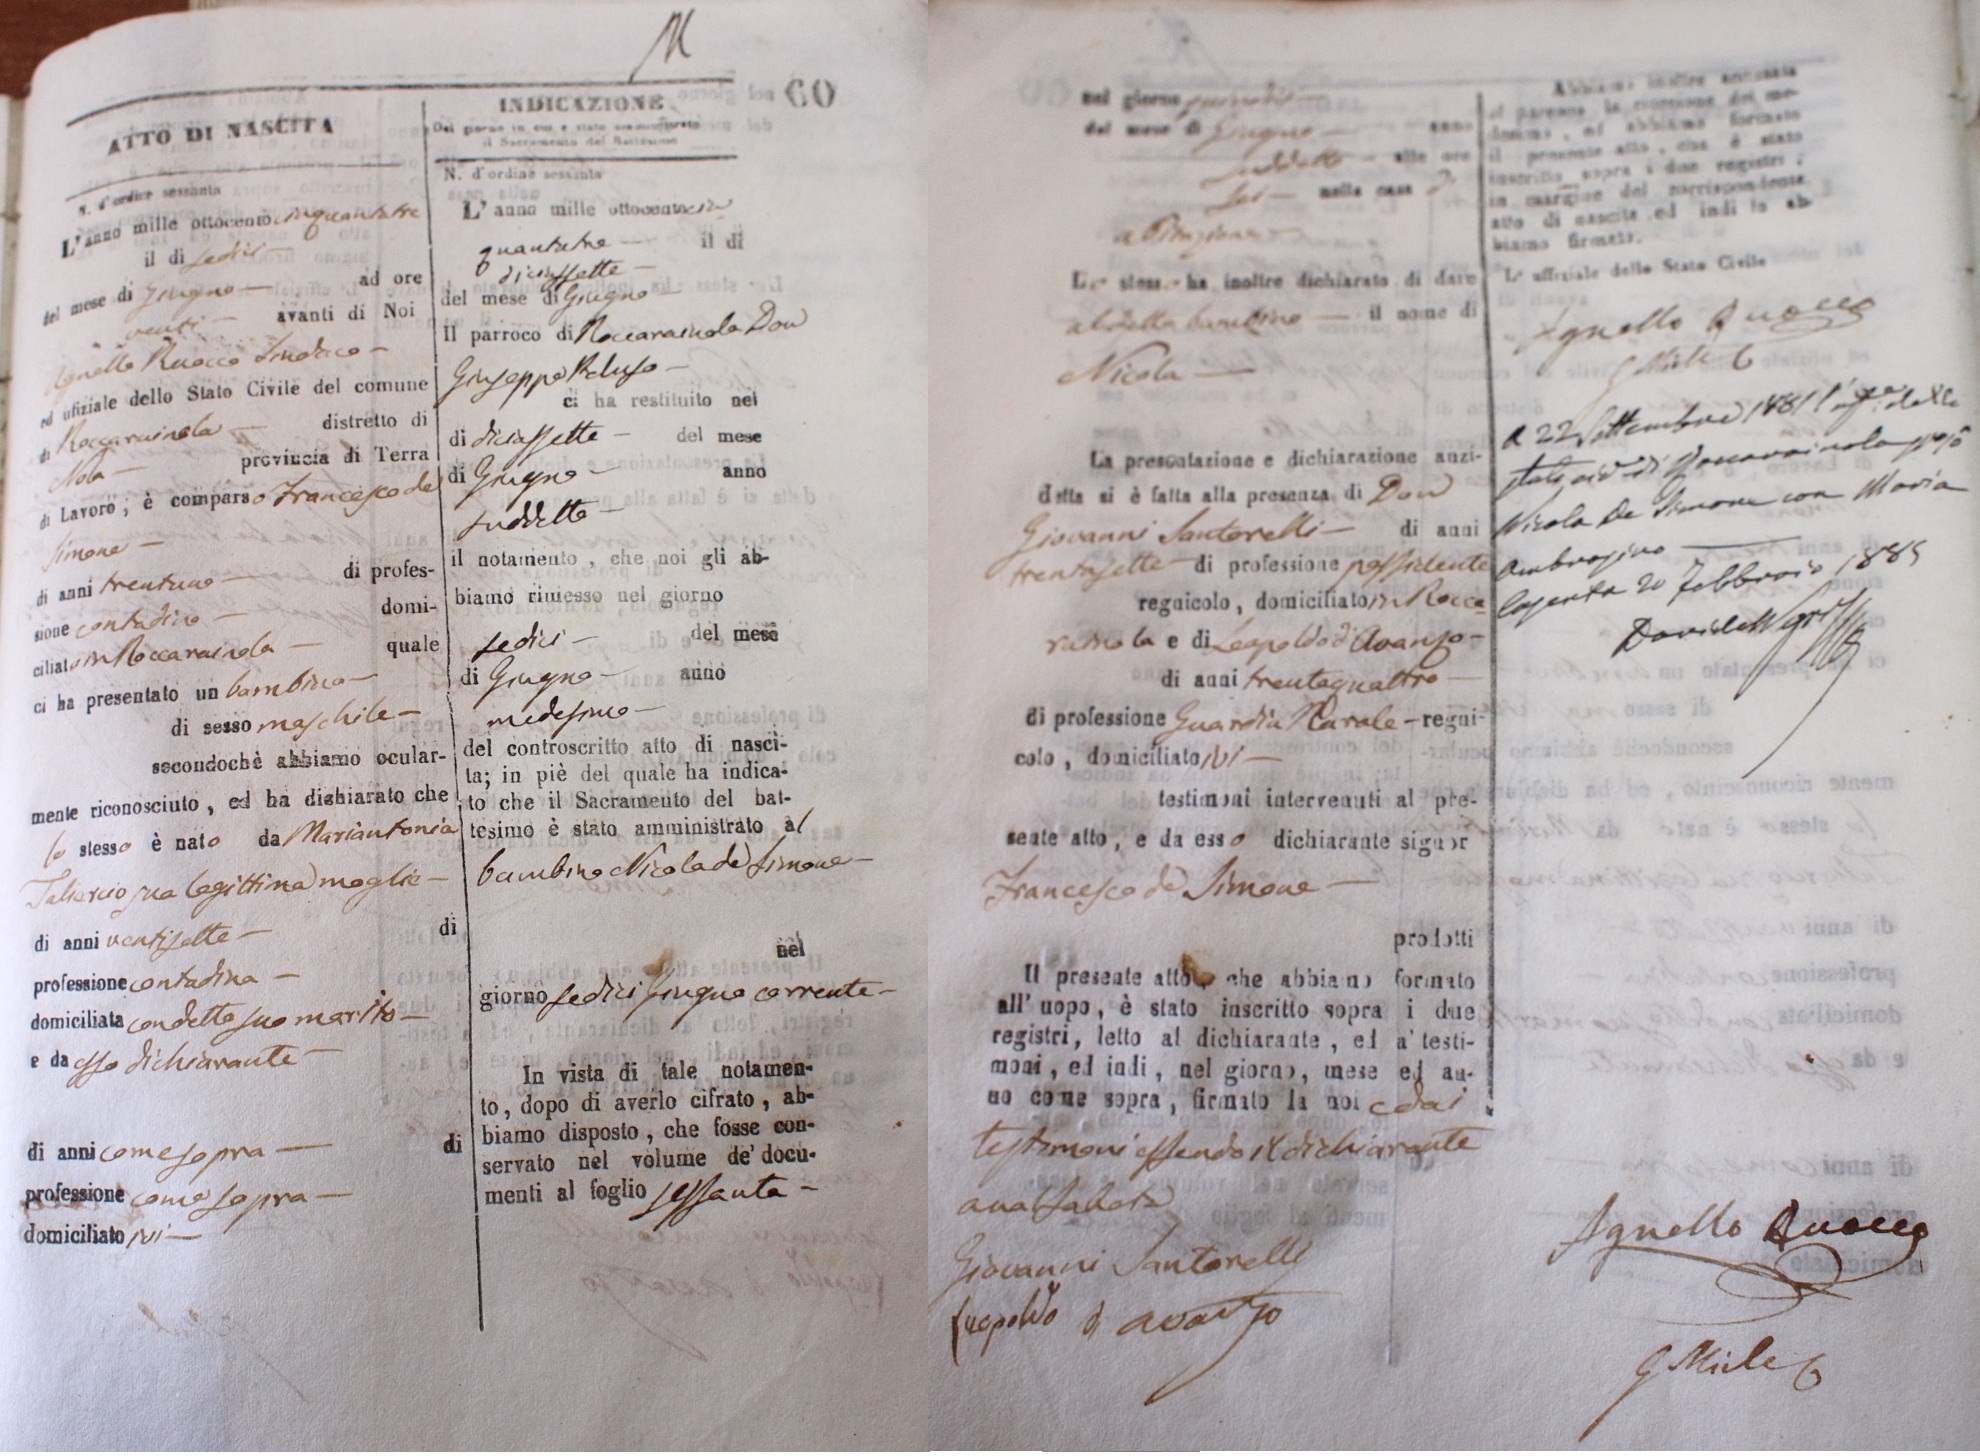 M
60
ATTO DI NASCITA
N. d'ordine sessanta
L'anno mille ottocento cinquantatre
il di sedici
del mese di Giugno ad ore
venti avanti di Noi
Agnello Ruocco Sindaco
ed ufiziale dello Stato Civile del comune
di Roccarainola distretto di
Nola provincia di Terra
di Lavoro; è comparso Francesco de
Simone
di anni trentuno di profes-
sione contadino domi-
ciliato in Roccarainola quale
ci ha presentato un bambino
di sesso maschile
secondochè abbiamo ocular-
mente riconosciuto, ed ha dichiarato che
lo stesso è nato da Mariantonia
Taliercio sua legittima moglie
di anni ventisette di
professione contadina
domiciliata con detto suo marito
e da esso dichiarante
di anni come sopra di
professione come sopra
domiciliato ivi
INDICAZIONE
Del giorno in cui è stato amministrato
il Sacramento del Battesimo
N. d'ordine sessanta
L'anno mille ottocento cin
quantatre il di
diciassette
del mese di Giugno
Il parroco di Roccarainola Don
Giuseppe Peluso
ci ha restituito nel
di diciassette del mese
di Giugno anno
suddetto
il notamento, che noi gli ab-
biamo rimesso nel giorno
sedici del mese
di Giugno anno
medesimo
del controscritto atto di nasci-
ta; in piè del quale ha indica-
to che il Sacramento del bat-
tesimo è stato amministrato al
bambino Nicola de Simone
nel
giorno sedici Giugno corrente
In vista di tale notamen-
to, dopo di averlo cifrato, ab-
biamo disposto, che fosse con-
servato nel volume de' docu-
menti al foglio sessanta
nel giorno quindici
del mese di Giugno anno
suddetto alle ore
sei nella casa di
abitazione
Lo stesso ha inoltre dichiarato di dare
al detto bambino il nome di
Nicola
La presentazione e dichiarazione anzi-
detta si è fatta alla presenza di Don
Giovanni Santorelli di anni
trentasette di professione possidente
regnicolo, domiciliato in Rocca
rainola e di Leopoldo d'Avanzo
di anni trentaquattro
di professione Guardia Rurale regni-
colo, domiciliato ivi
testimoni intervenuti al pre-
sente atto, e da esso dichiarante signor
Francesco de Simone
prodotti
Il presente atto, che abbiamo formato
all'uopo, è stato inscritto sopra i due
registri, letto al dichiarante, ed a' testi-
moni, ed indi, nel giorno, mese ed an-
no come sopra, firmato da noi e dai
testimoni essendo il dichiarante
analfabeta
Giovanni Santorelli
Leopoldo d'avanzo
Abbiamo inoltre accusato
al parroco la ricezione del me-
desimo, ed abbiamo formato
il presente atto, che è stato
inscritto sopra i due registri,
in margine del corrispondente
atto di nascita ed indi lo ab-
biamo firmato.
L'uffiziale dello Stato Civile
Agnello Ruocco
G Miele
A 22 Settembre 1881 dello
stato di Roccarainola sposò
Nicola De Simone con Maria
Ambrosino
Caserta 20 Febbraio 1885
Agnello Ruocco
G Miele